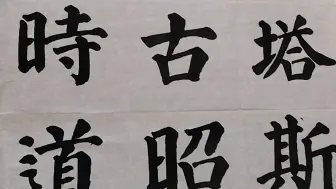 塔斯
古昭
時道